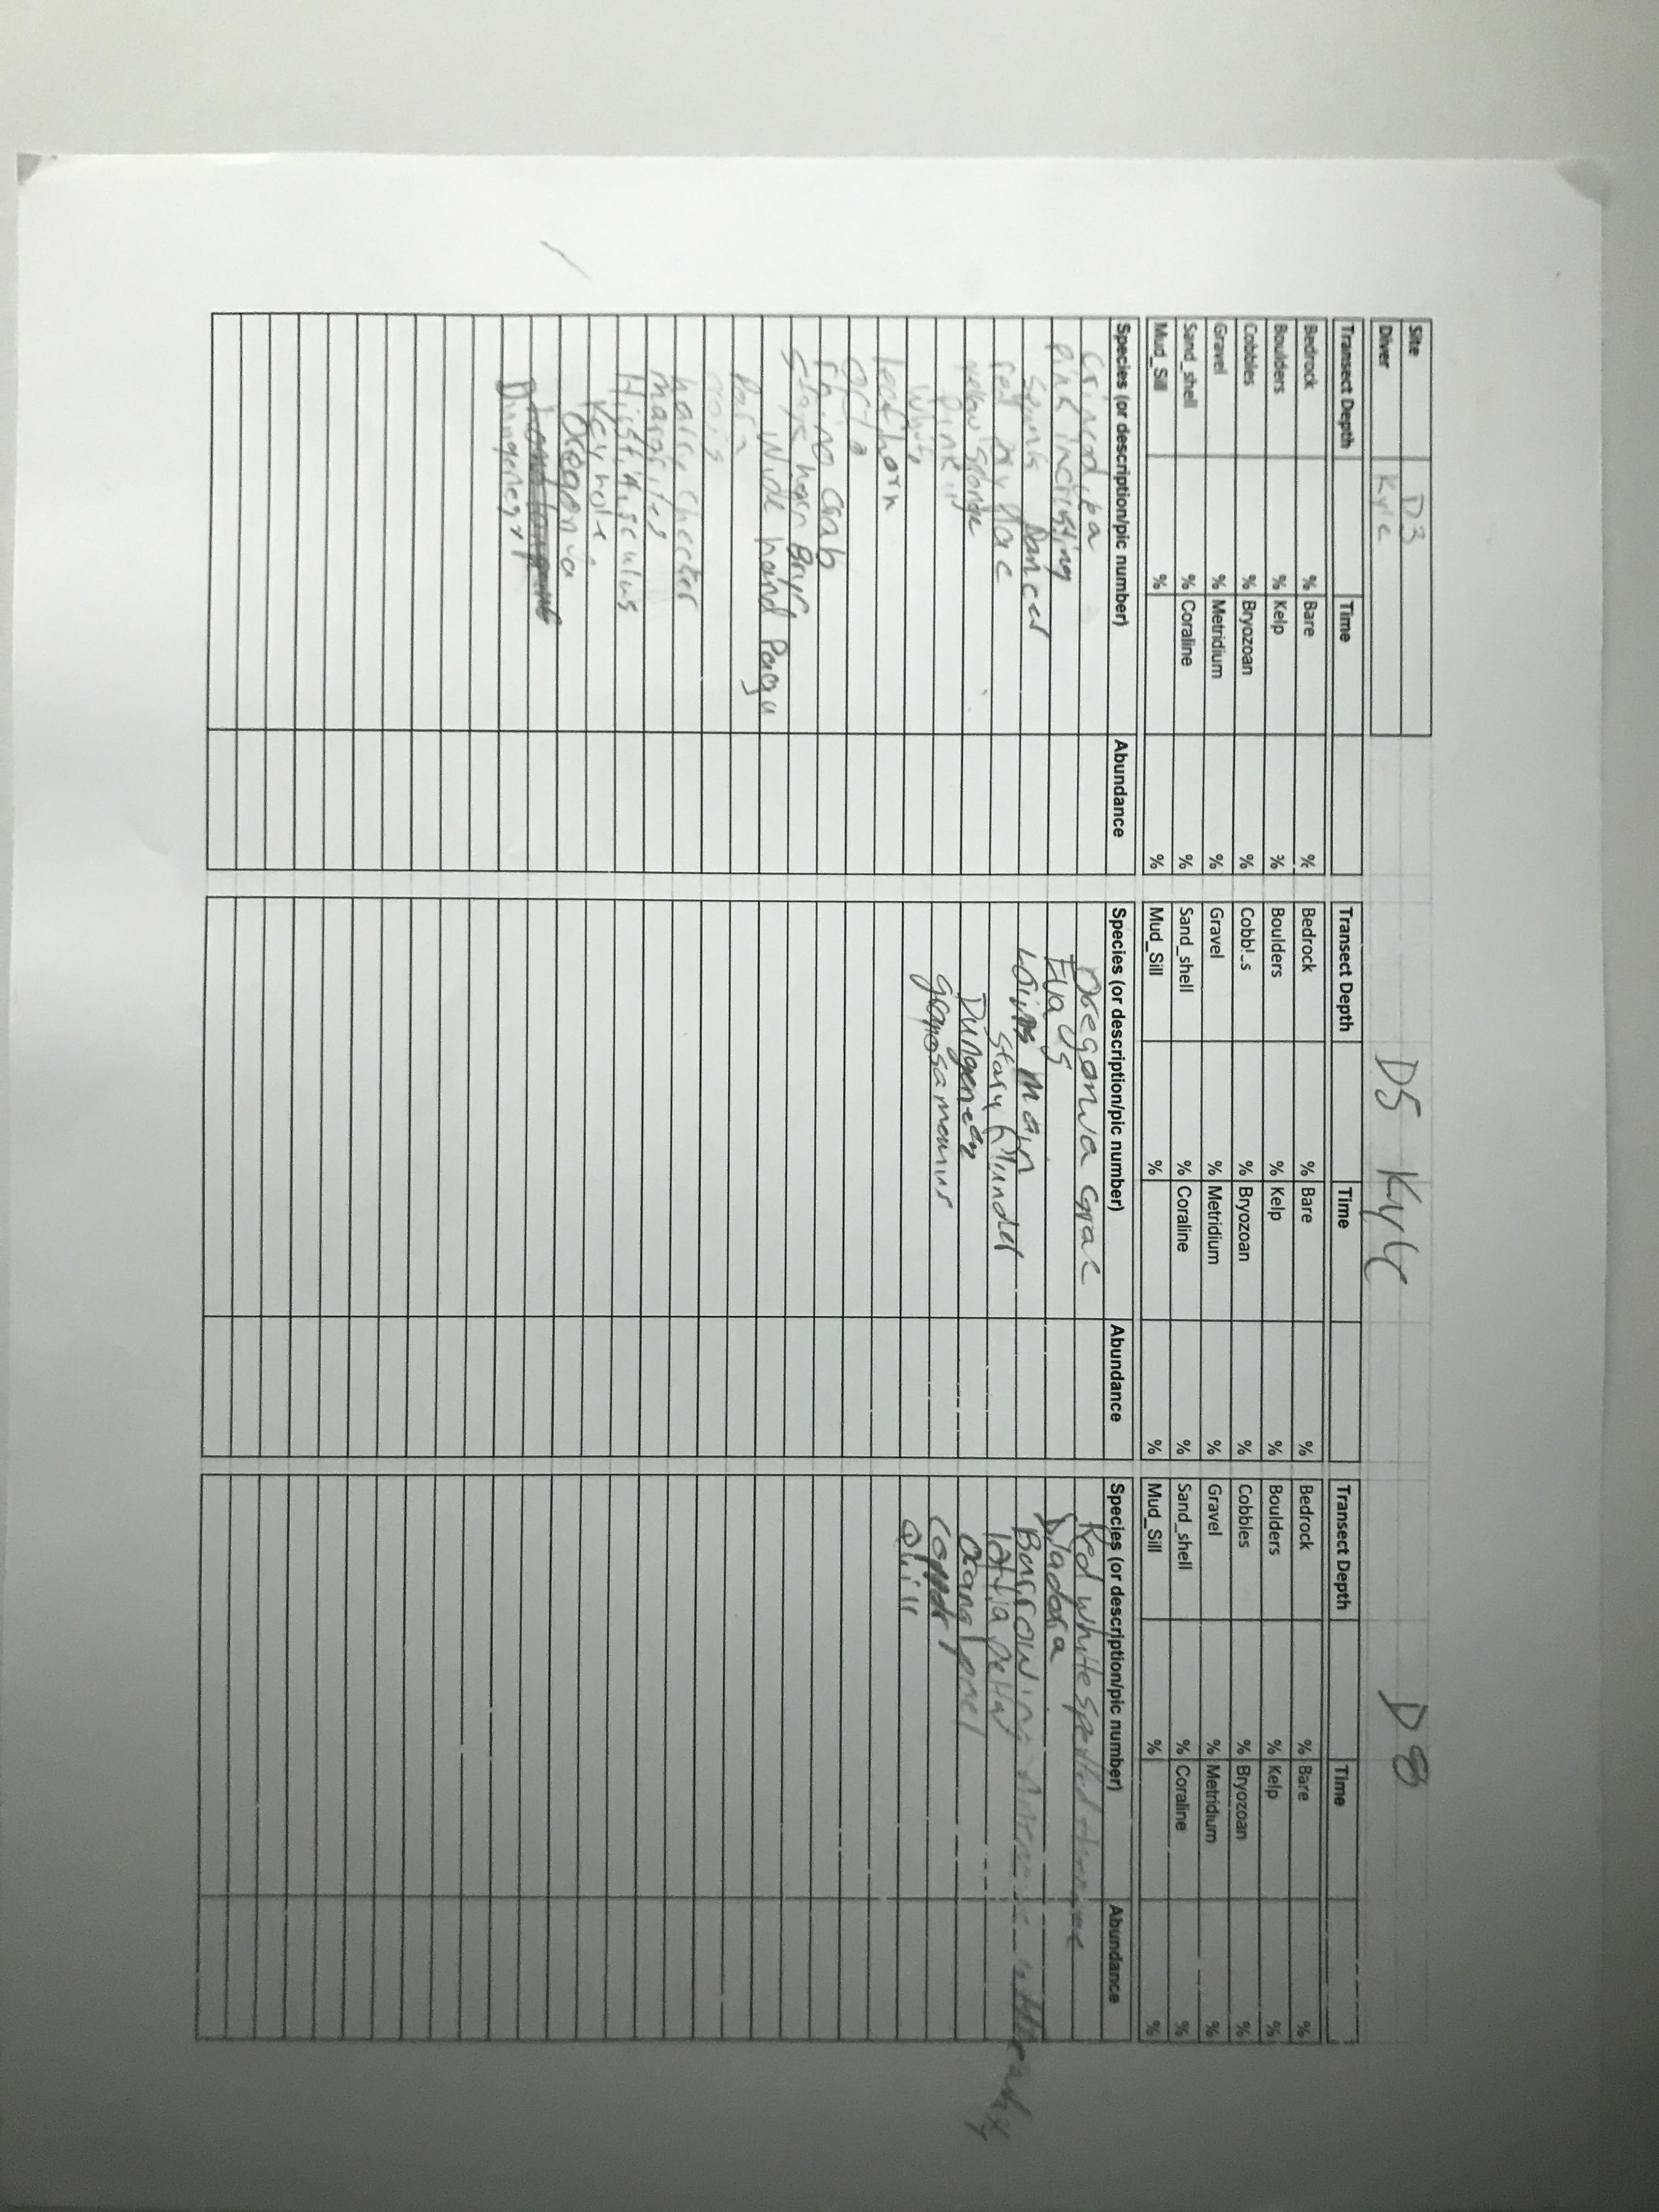 Site D3
Diver Kyle
D5 Kyle
D8
Transect Depth Time
Bedrock % Bare %
Boulders % Kelp %
Cobbles % Bryozoan %
Gravel % Metridium %
Sand_shell % Coraline %
Mud_Sill % %
Species (or description/pic number) Abundance
Pink incrusting
Spiny Dancer
yellow sponge
Pink
white
leafhorn
Orto
Rhino Crab
Stag horn Bryo
Wide hand Pagu
harry checker
margrites
Key hole
Oregonia
Dungenegy
Transect Depth Time
Bedrock % Bare %
Boulders % Kelp %
Cobbles % Bryozoan %
Gravel % Metridium %
Sand_shell % Coraline %
Mud_Sill % %
Species (or description/pic number) Abundance
Oregonia grac
Evacs
Loins main
Stary flunder
Dungeness
Transect Depth Time
Bedrock % Bare %
Boulders % Kelp %
Cobbles % Bryozoan %
Gravel % Metridium %
Sand_shell % Coraline %
Mud_Sill % %
Species (or description/pic number) Abundance
Red white spotted
Diadora
Burrowing
lottia peltat
Copper
Quill